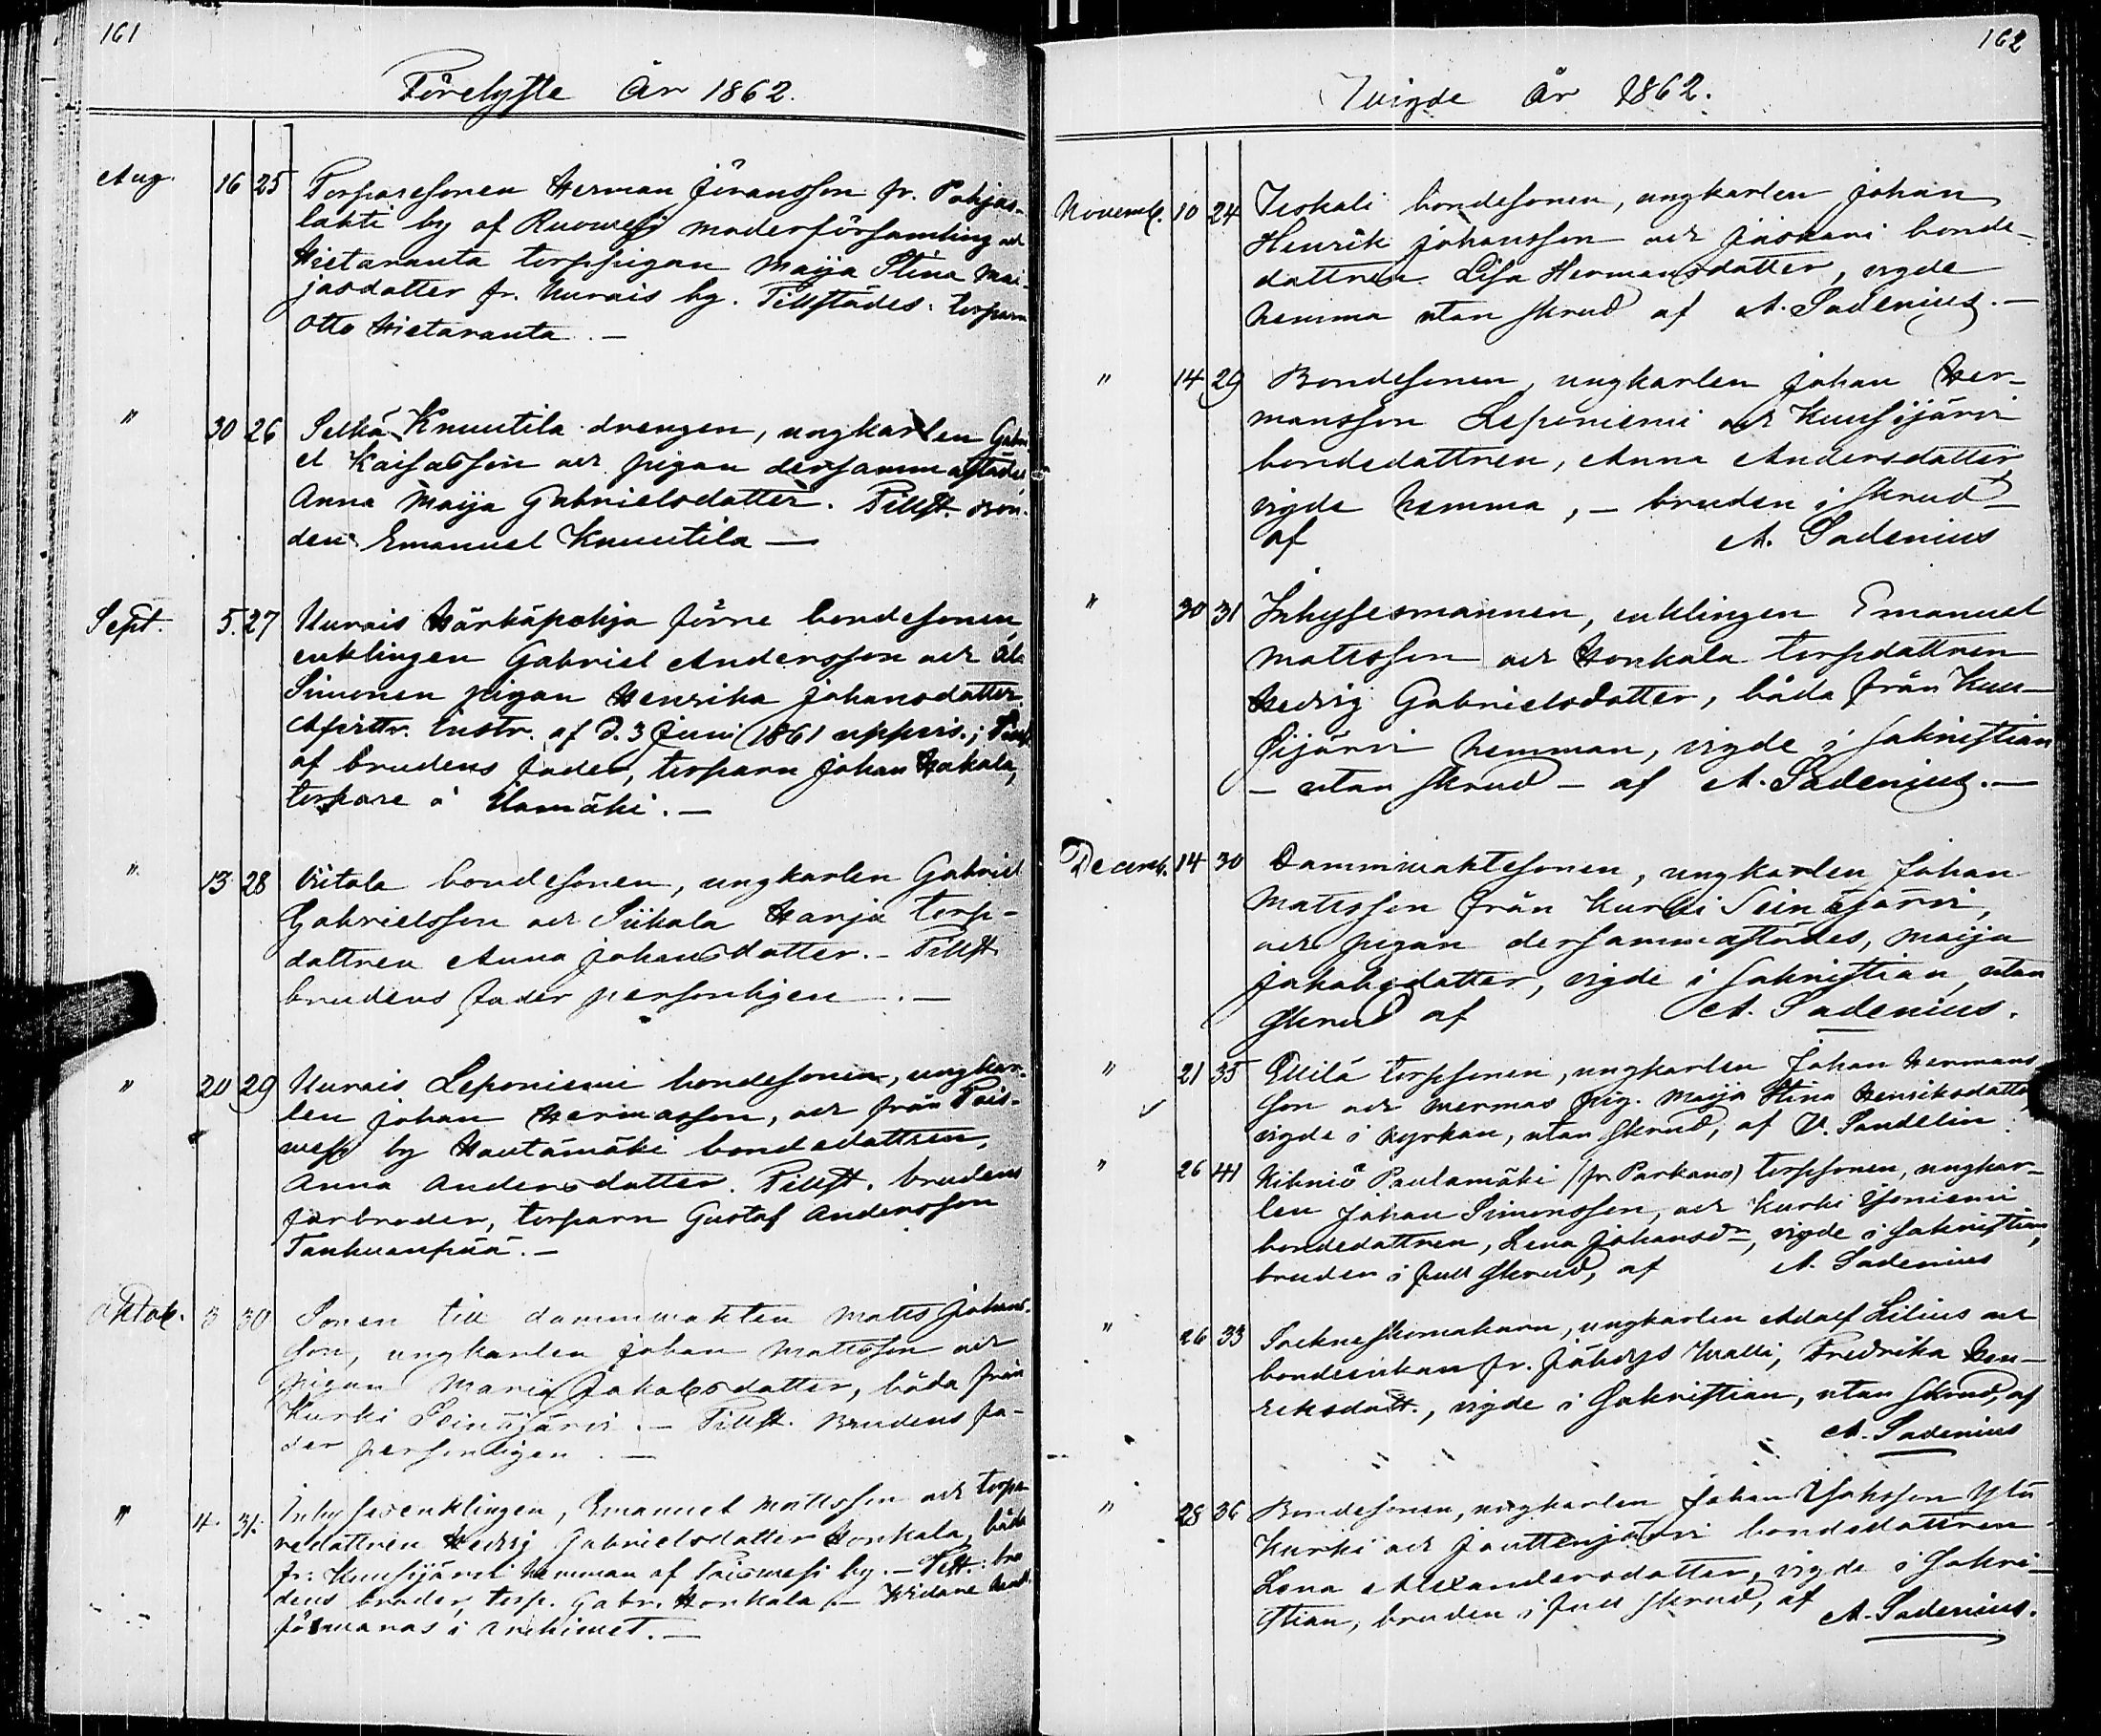 161
Förelyste År 1862.
Aug. 16 25 Torparesonen Herman Jöransson fr. Pohjas-
lahti by af Ruowesi moderförsamling och
Hietaranta torppigan Maija Stina Mai-
jasdatter fr. Kurais by. Tillstådes: torparn
Otto Hietaranta. —
" 30 26 Selkä Knuutila drengen, ungkarlen Gabri-
el Kaisasson och pigan dersammastädes
Anna Maija Gabrielsdatter. Tillst. Bon-
den Emanuel Knuutila —
Sept. 5. 27 Kurais Härkäpohja förre bondesonen,
enklingen Gabriel Andersson och
Simonen pigan Henrika Johansdatter.
Afvittr. Instr. af d. 3 Juni 1861 uppvis.;
af brudens fader, torparn Johan Hakala,
torpare å Ulamäki. —
" 13 28 Viitala bondesonen, ungkarlen Gabriel
Gabrielsson och Siikala Harju torp-
dattren Anna Johansdatter. — Tillst.
brudens fader personligen. —
" 20 29 Kurais Leponiemi bondesonen, ungkar-
len Johan Hermasson, och från Tois-
wesi by Hautamäki bondedattren,
Anna Andersdatter. Tillst. brudens
farbroder, torparn Gustaf Andersson
Tanhuanpää. —
Oktob. 3 30 Sonen till dammwakten Matts Johans-
son, ungkarlen Johan Mattsson och
pigan Maria Jakobsdatter, båda från
Kurki Seinäjärvi. — Tillst. Brudens fa-
der personligen. —
" 4. 31. Inhysesenklingen, Emanuel Mattsson och torpa-
redattren Hedvig Gabrielsdatter Honkala, båda
fr. Kuusijärvi hemman af Toiswesi by. — Tillst.: bru-
dens broder, torp. Gabr. Honkala —
förwaras i archivet. —
162
Vigde År 1862.
Novemb. 10 24 Iiskali bondesonen, ungkarlen Johan
Henrik Johansson och Jäskari bonde-
dattren Lisa Hermansdatter, vigde
hemma utan skrud af A. Sadenius. —
" 14 29 Bondesonen, ungkarlen Johan Her-
mansson Leponiemi och Kuusijärvi
bondedattren, Anna Andersdatter,
vigde hemma, — bruden i skrud —
af A. Sadenius
" 30 31 Inhyssesmannen, enklingen Emanuel
Mattsson och Honkala torpdattren
Hedvig Gabrielsdatter, båda från Kuu-
sijärvi hemman, vigde i sakristian
— utan skrud — af A. Sadenius. —
Decemb. 14 30 Dammwaktesonen, ungkarlen Johan
Mattsson från Kurki Seinäjärvi,
och pigan dersammastädes, Maija
Jakobsdatter, vigde i sakristian, utan
skrud af A. Sadenius.
" 21 35 Ellilä torpsonen, ungkarlen Johan Hermans-
son och Mermas pig. Maija Stina Henriksdatter,
vigde i kyrkan, utan skrud, af V. Sandelin.
" 26 41 Kihniö Paulamäki (fr Parkano) torpsonen, ungkar-
len Johan Simonsson, och Kurki Isoniemi
bondedattren, Lena Johansdr, vigde i sakristian,
bruden i full skrud, af A. Sadenius
" 26 33 Sockneskomakarn, ungkarlen Adolf Lilius och
bondeenkan fr. Jäkärys Walli, Fredrika Hen-
reksdatt., vigde i sakristian, utan skrud, af
A. Sadenius
" 28 36 Bondesonen, ungkarlen Johan Isaksson Yli
Kurki och Jauttenjärvi bondedattren
Lena Alexandersdatter, vigde i sakri-
stian, bruden i full skrud, af A. Sadenius.